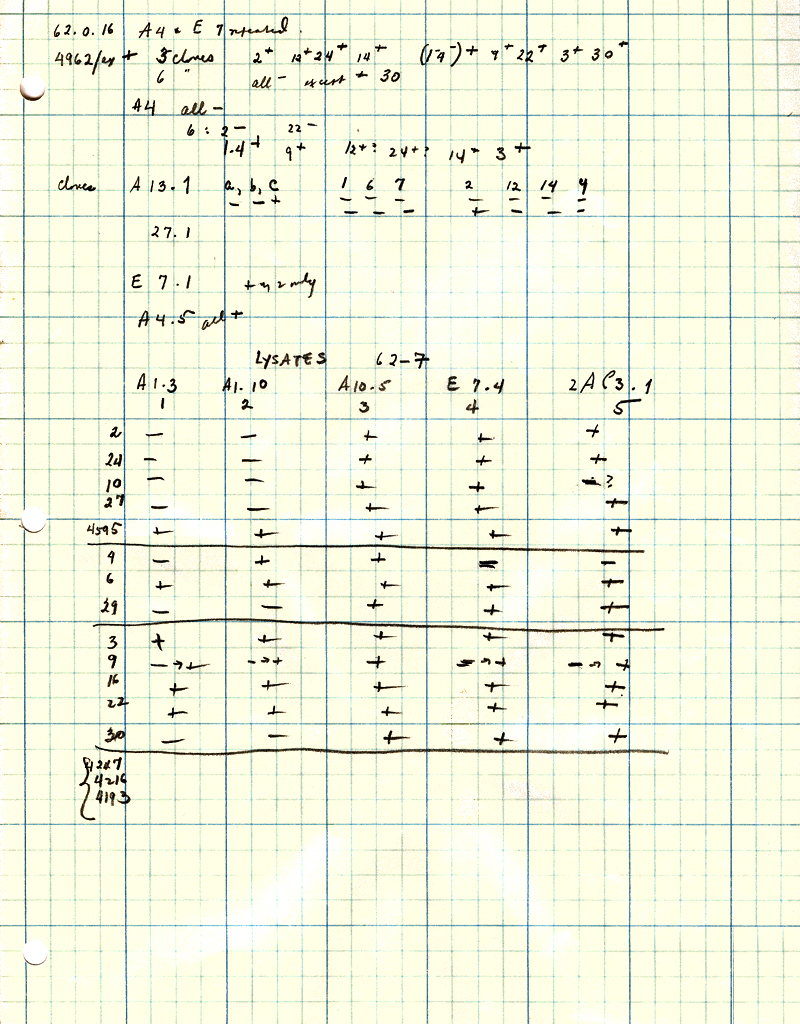 62.0.16 A4 & E 7 repeated.
4962/ + 5 clones 2+ 12+ 24+ 14+ (1-9-)+ 9+ 22+ 3+ 30+
6 " all - except + 30
A4 all -
6 : 2- 22-
1.4+ 9+ 12+? 24+? 14+ 3+
clones A 13.1 a, b, c 1 6 7 2 12 14 4
- - + - - - - - - -
- - - + - - -
27.1
E 7.1 + only
A4.5 all +
LYSATES 62-7
A1.3 A1.10 A10.5 E 7.4
1 2 3 4 5
2 - - + + +
24 - - + + +
10 - - + + - ?
27 - - + + +
4595 + + + + +
4 - + + = -
6 + + + + +
29 - - + + +
3 + + + + +
9 -→+ -→+ + =→+ -→+
16 + + + + +
22 + + + + +
30 - - + + +
4247
4216
4193